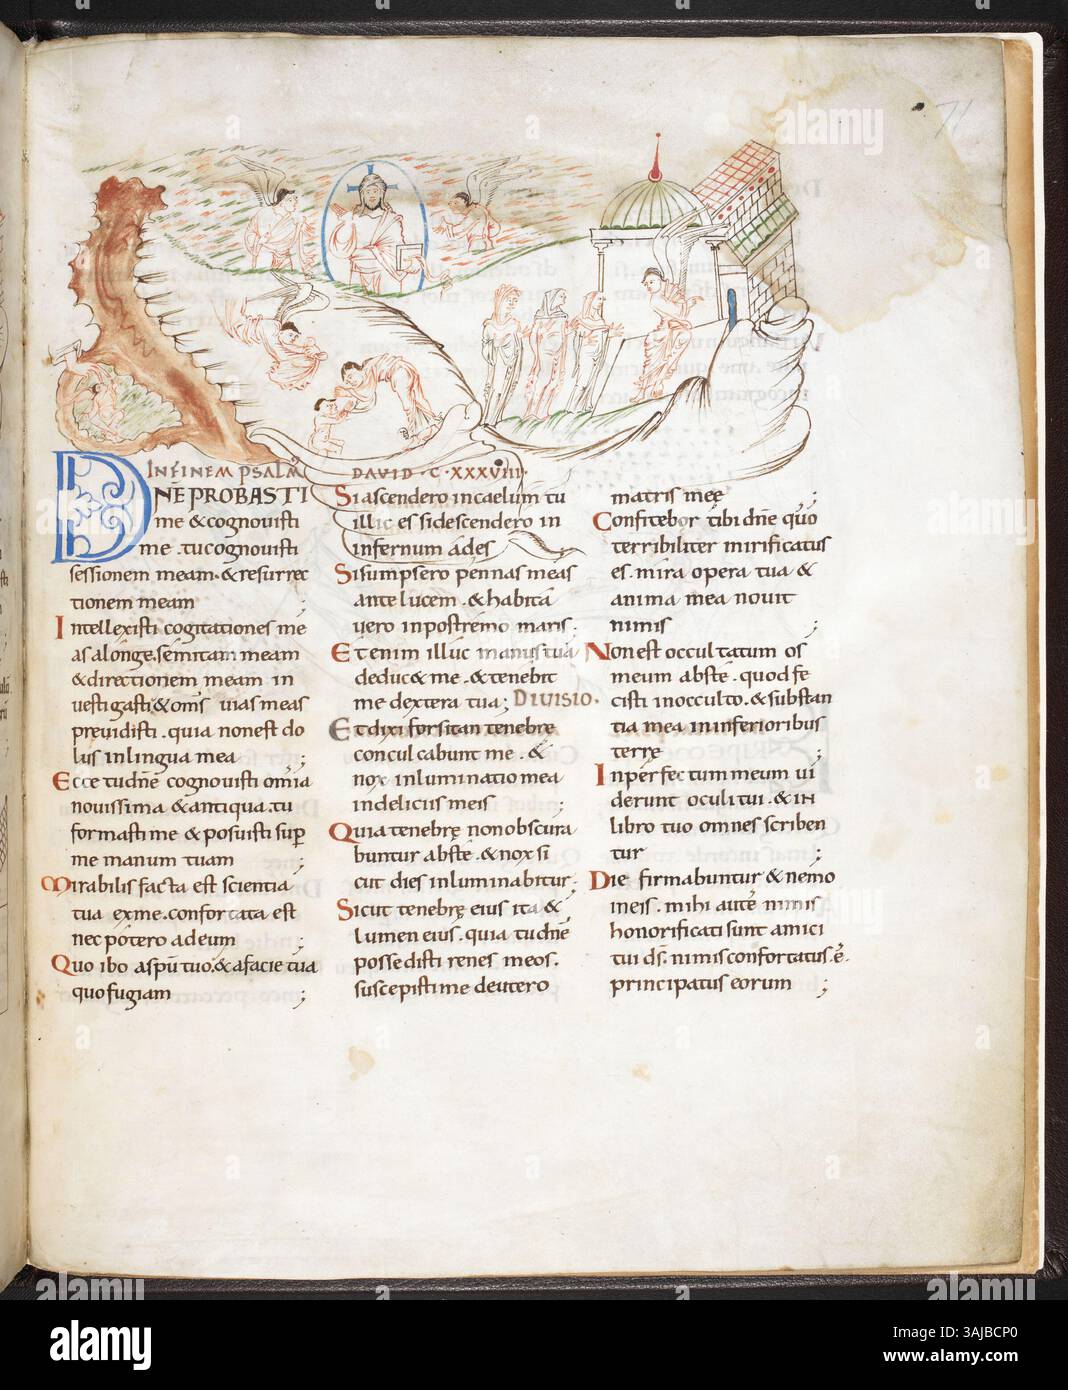 71
IN FINEM PSALM DAVID · C · XXXVIII ·
DNE PROBASTI
me & cognovisti
me . tu cognovisti
sessionem meam . & resurrec
tionem meam ;
Intellexisti cogitationes me
as alonge . semitam meam
& directionem meam in
vestigasti & oms vias meas
previdisti . quia non est do
lus in lingua mea ;
Ecce tu dne cognovisti omia
novissima & antiqua . tu
formasti me & posuisti sup
me manum tuam ;
Mirabilis facta est scientia
tua ex me . confortata est
nec potero ad eum ;
Quo ibo a spu tuo . & a facie tua
quo fugiam ;
Si ascendero in caelum tu
illic es si descendero in
infernum ades
Si sumpsero pennas meas
ante lucem . & habita
vero in postremo maris .
Et enim illuc manus tua
deduc & me . & tenebit
me dextera tua ; DIVISIO .
Et dixi forsitan tenebrę
conculcabunt me . &
nox inluminatio mea
in deliciis meis ;
Quia tenebrę non obscura
buntur abs te . & nox si
cut dies inluminabitur ;
Sicut tenebrę eius ita &
lumen eius . quia tu dne
possedisti renes meos .
suscepisti me de utero
matris meę ;
Confitebor tibi dne quo
terribiliter mirificatus
es . mira opera tua &
anima mea novit
nimis ;
Non est occultatum os
meum abs te . quod fe
cisti in occulto . & substan
tia mea in inferioribus
terrę ;
Inperfectum meum vi
derunt oculi tui . & in
libro tuo omnes scriben
tur ;
Die firmabuntur & nemo
in eis . mihi aute nimis
honorificati sunt amici
tui ds . nimis confortatus . e .
principatus eorum ;
alamy
Image ID: 3AJBCP0
www.alamy.com